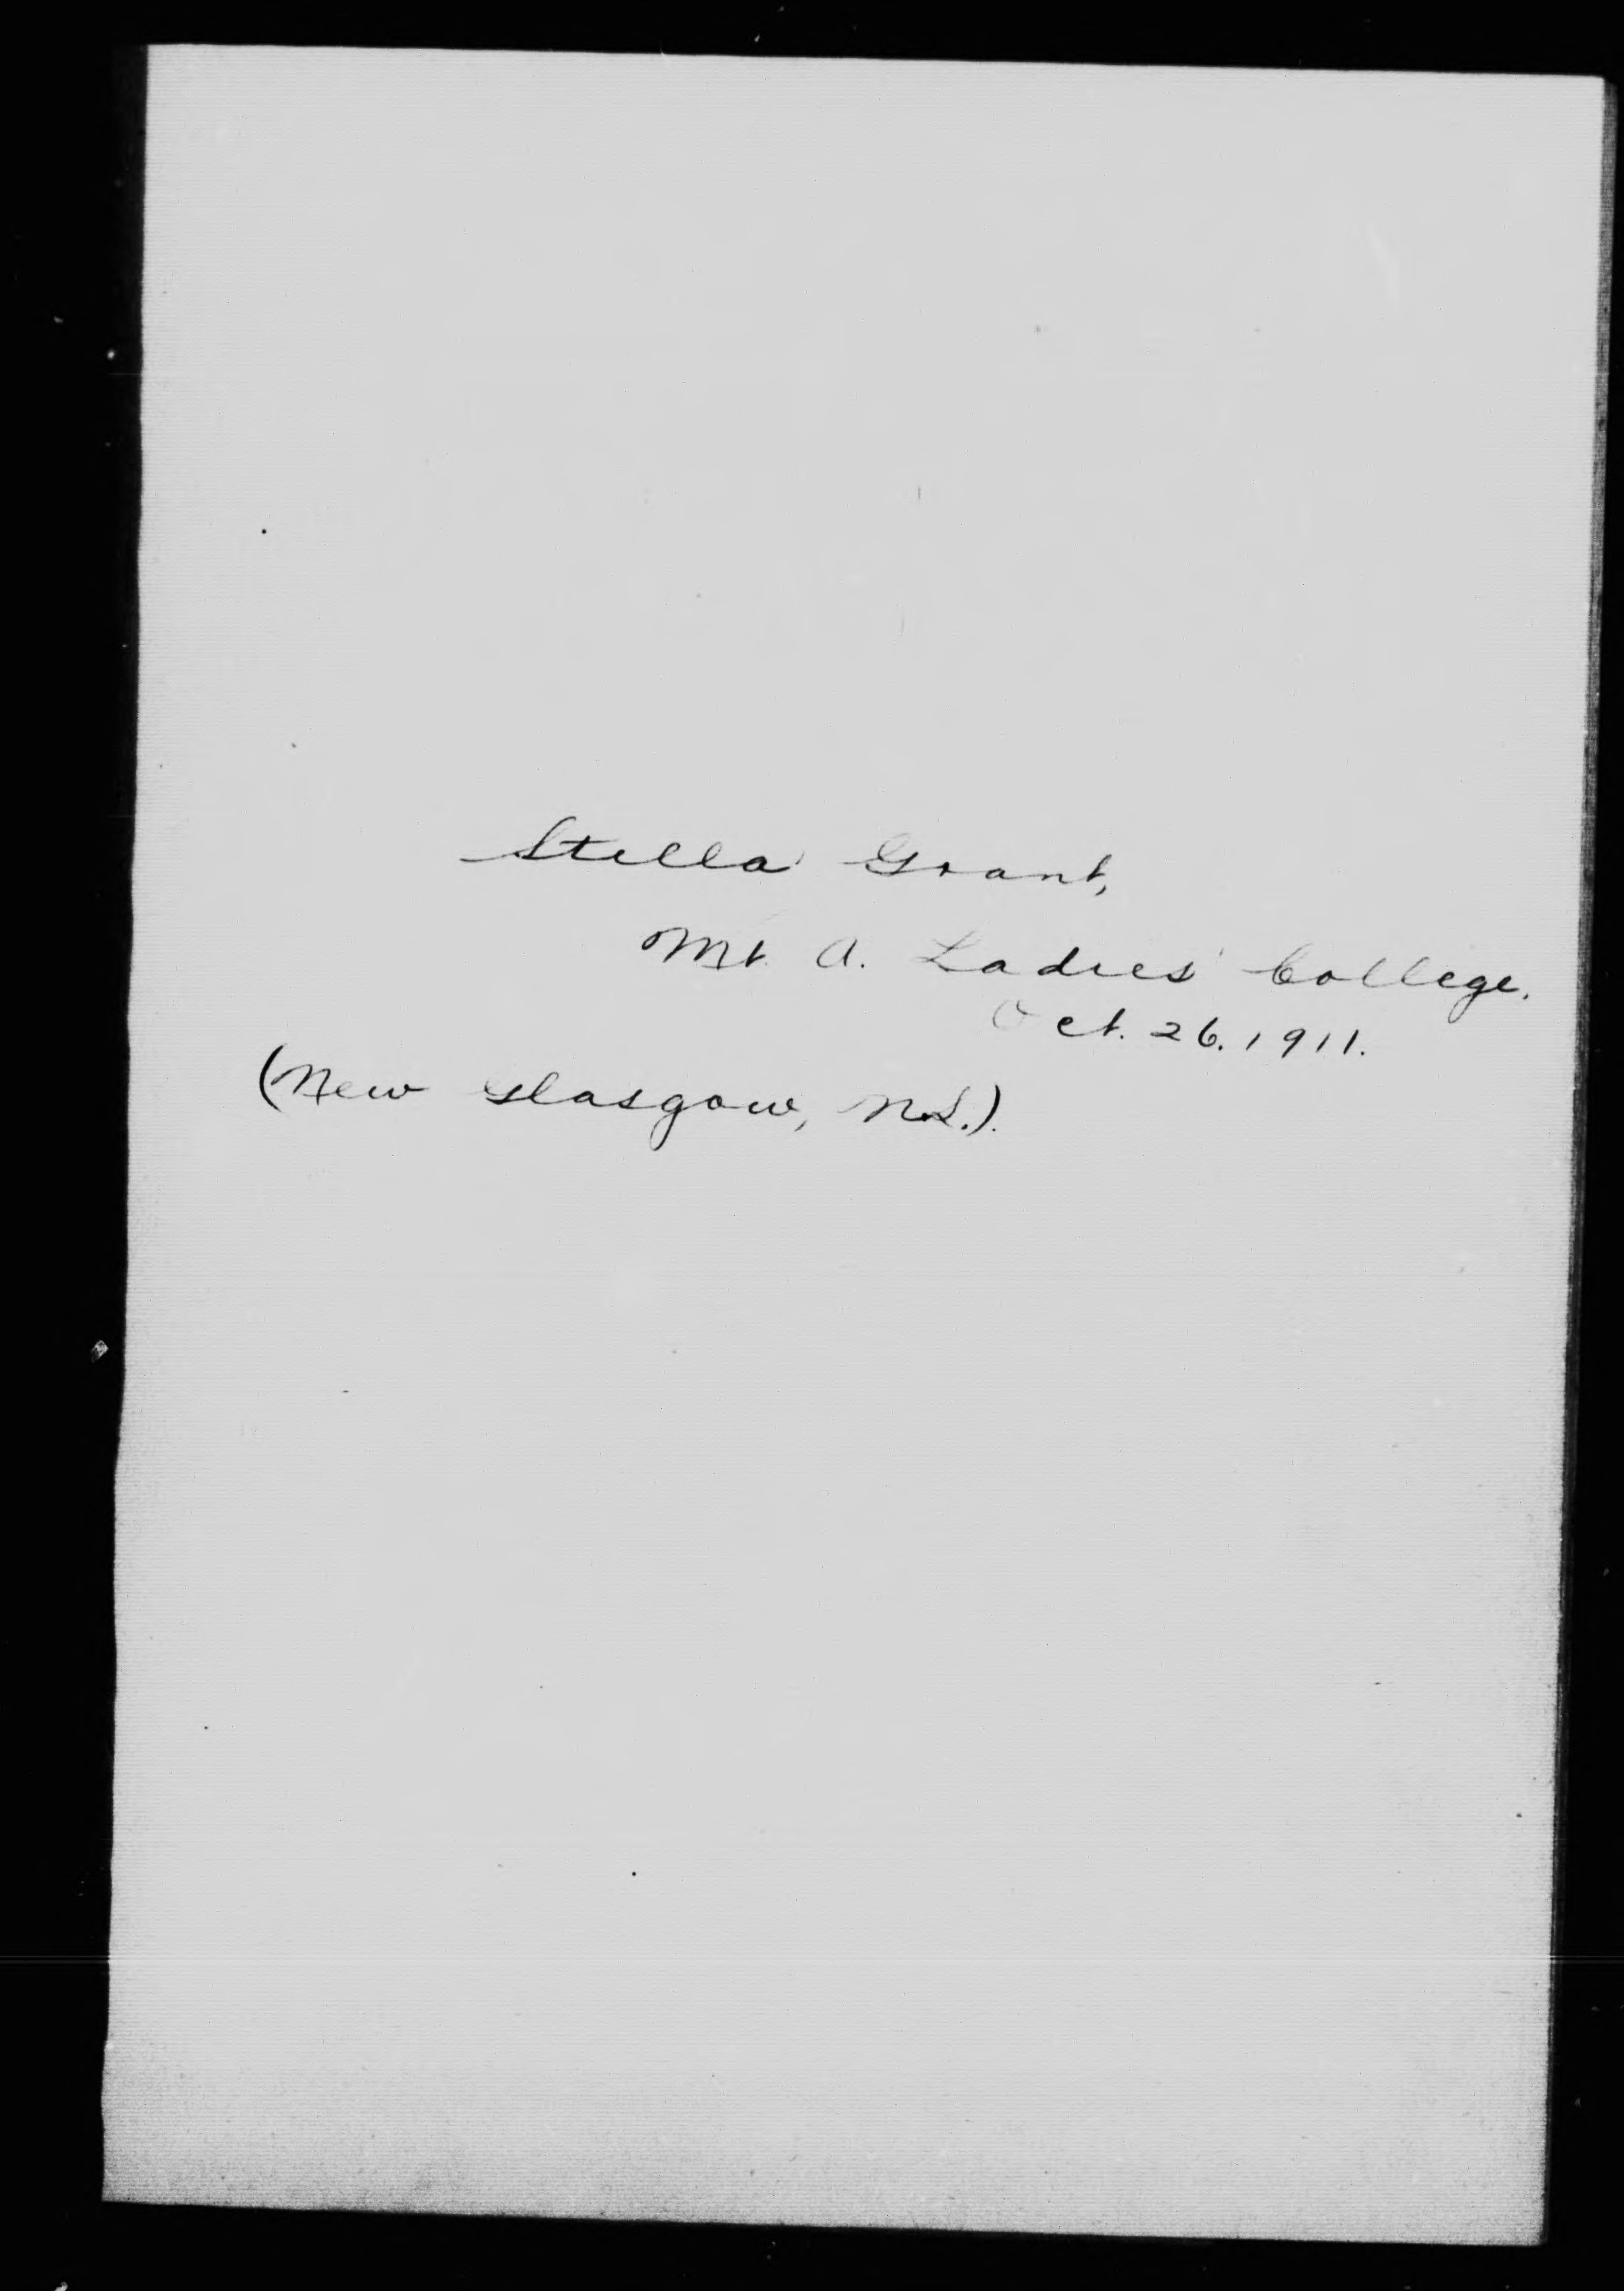 Stella Grant,
Mt. A. Ladies' College.
Oct. 26. 1911.
(New Glasgow, N.S.).